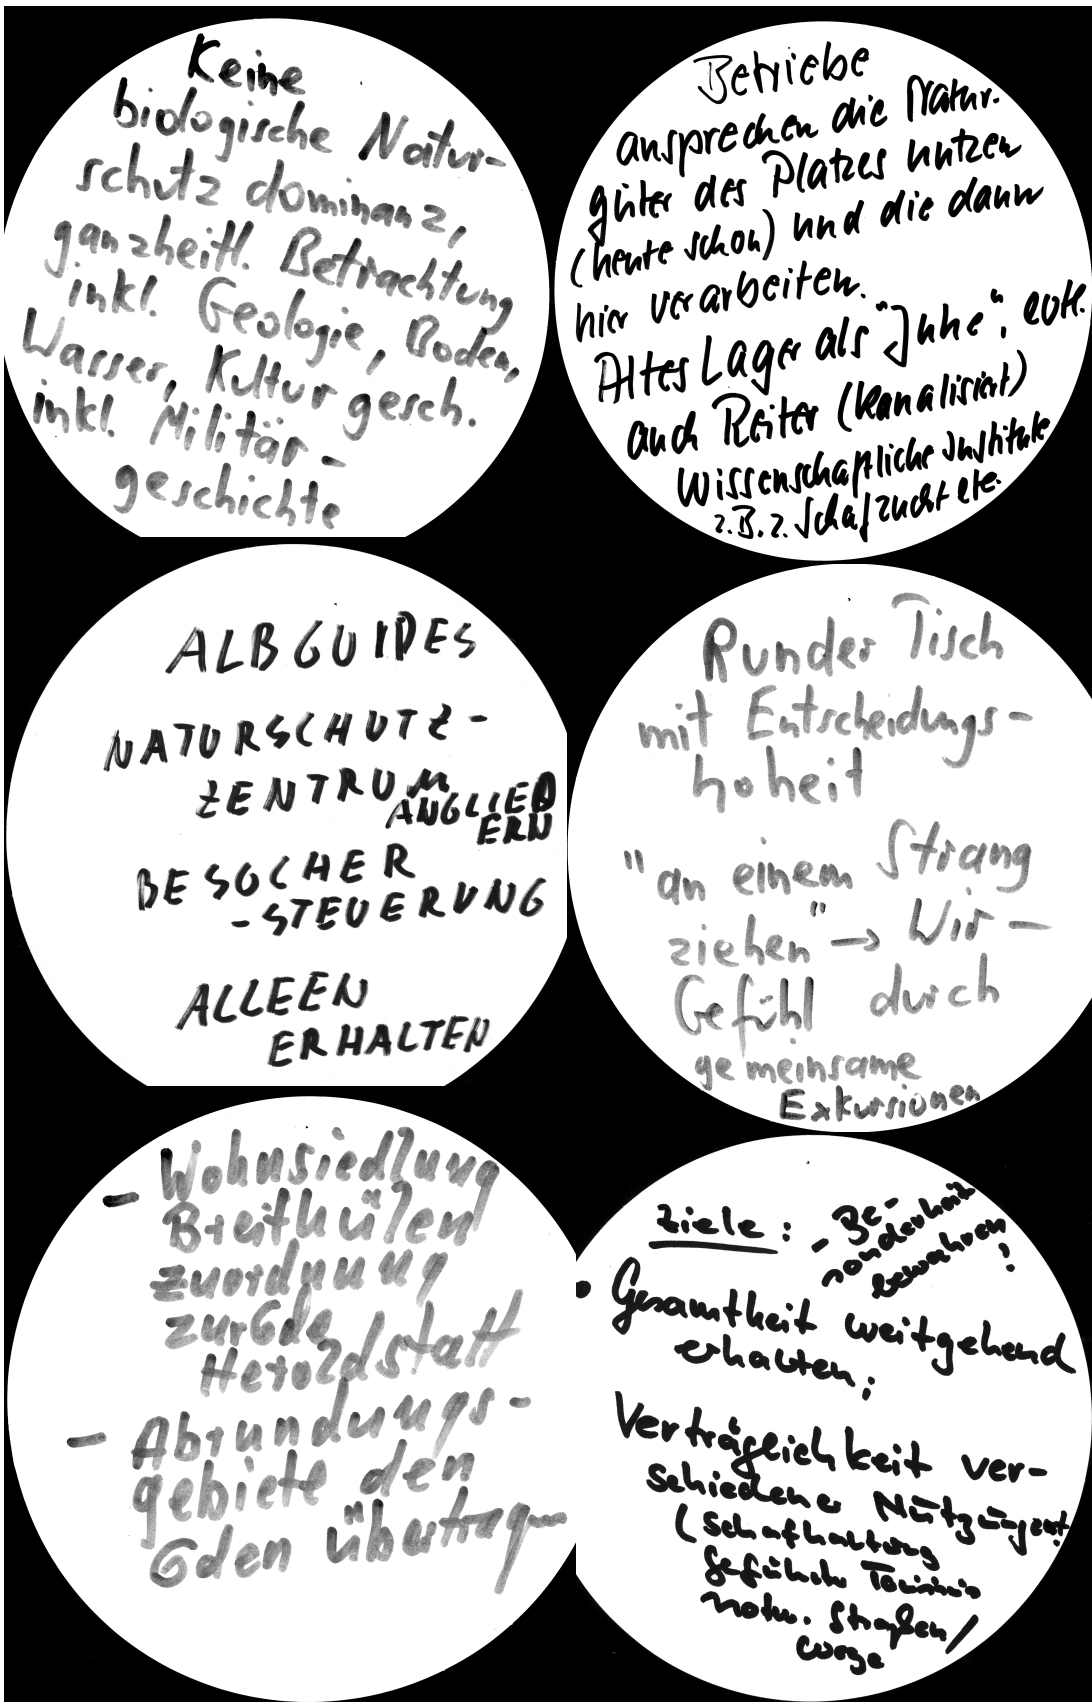 Keine
biologische Natur-
schutz dominanz,
ganzheitl. Betrachtung
inkl. Geologie, Boden,
Wasser, Kultur gesch.
inkl. Militär-
geschichte
Betriebe
ansprechen die Natur-
güter des Platzes nutzen
(heute schon) und die dann
hier verarbeiten.
Altes Lager als "Juhe", evtl.
auch Reiter (kanalisiert)
Wissenschaftliche Institute
z.B. z. Schafzucht etc.
ALBGUIDES
NATURSCHUTZ-
ZENTRUM
ANGLIED
ERN
BESUCHER
-STEUERUNG
ALLEEN
ERHALTEN
Runder Tisch
mit Entscheidungs-
hoheit
"an einem Strang
ziehen" → Wir-
Gefühl durch
gemeinsame
Exkursionen
- Wohnsiedlung
Breithülen
zuordnung
zur Gde
Heroldstatt
- Abrundungs-
gebiete den
Gden übertragen
Ziele:
- Be-
sonderheit
bewahren
!
• Gesamtheit weitgehend
erhalten;
Verträglichkeit ver-
schiedener Nutzungsart.
(Schafhaltung
geführte Tourismus
notw. Straßen/
wege